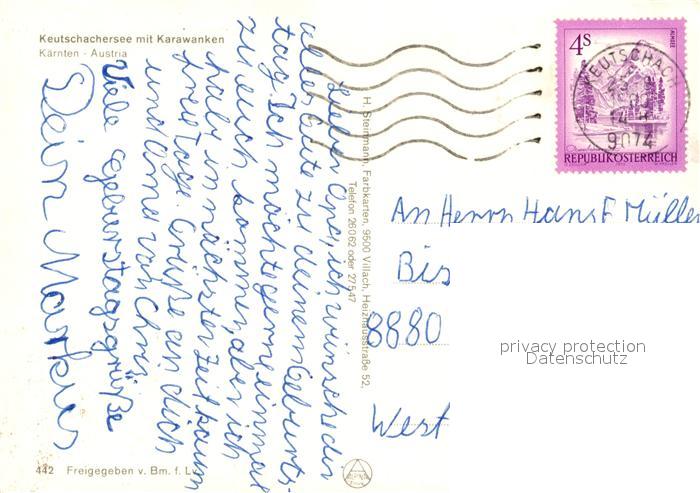 Keutschachersee mit Karawanken
Kärnten - Austria
Lieber Opa, ich wünsche dir
alles Gute zu deinem Geburts-
tag. Ich möchte gerne einmal
zu euch kommen, aber ich
habe in nächster Zeit kaum
freie Tage. Grüße an dich
und Oma von Chris
Viele Geburtstagsgrüße
Dein Markus
H. Steinmann, Farbkarten, 9500 Villach, Heizhausstraße 52,
Telefon 26062 oder 27547
4S
ALMSEE
KEUTSCHACH
9074
REPUBLIK ÖSTERREICH
An Herrn Hans F Müller
Bis
8880
West
privacy protection
Datenschutz
442 Freigegeben v. Bm. f. Lv.